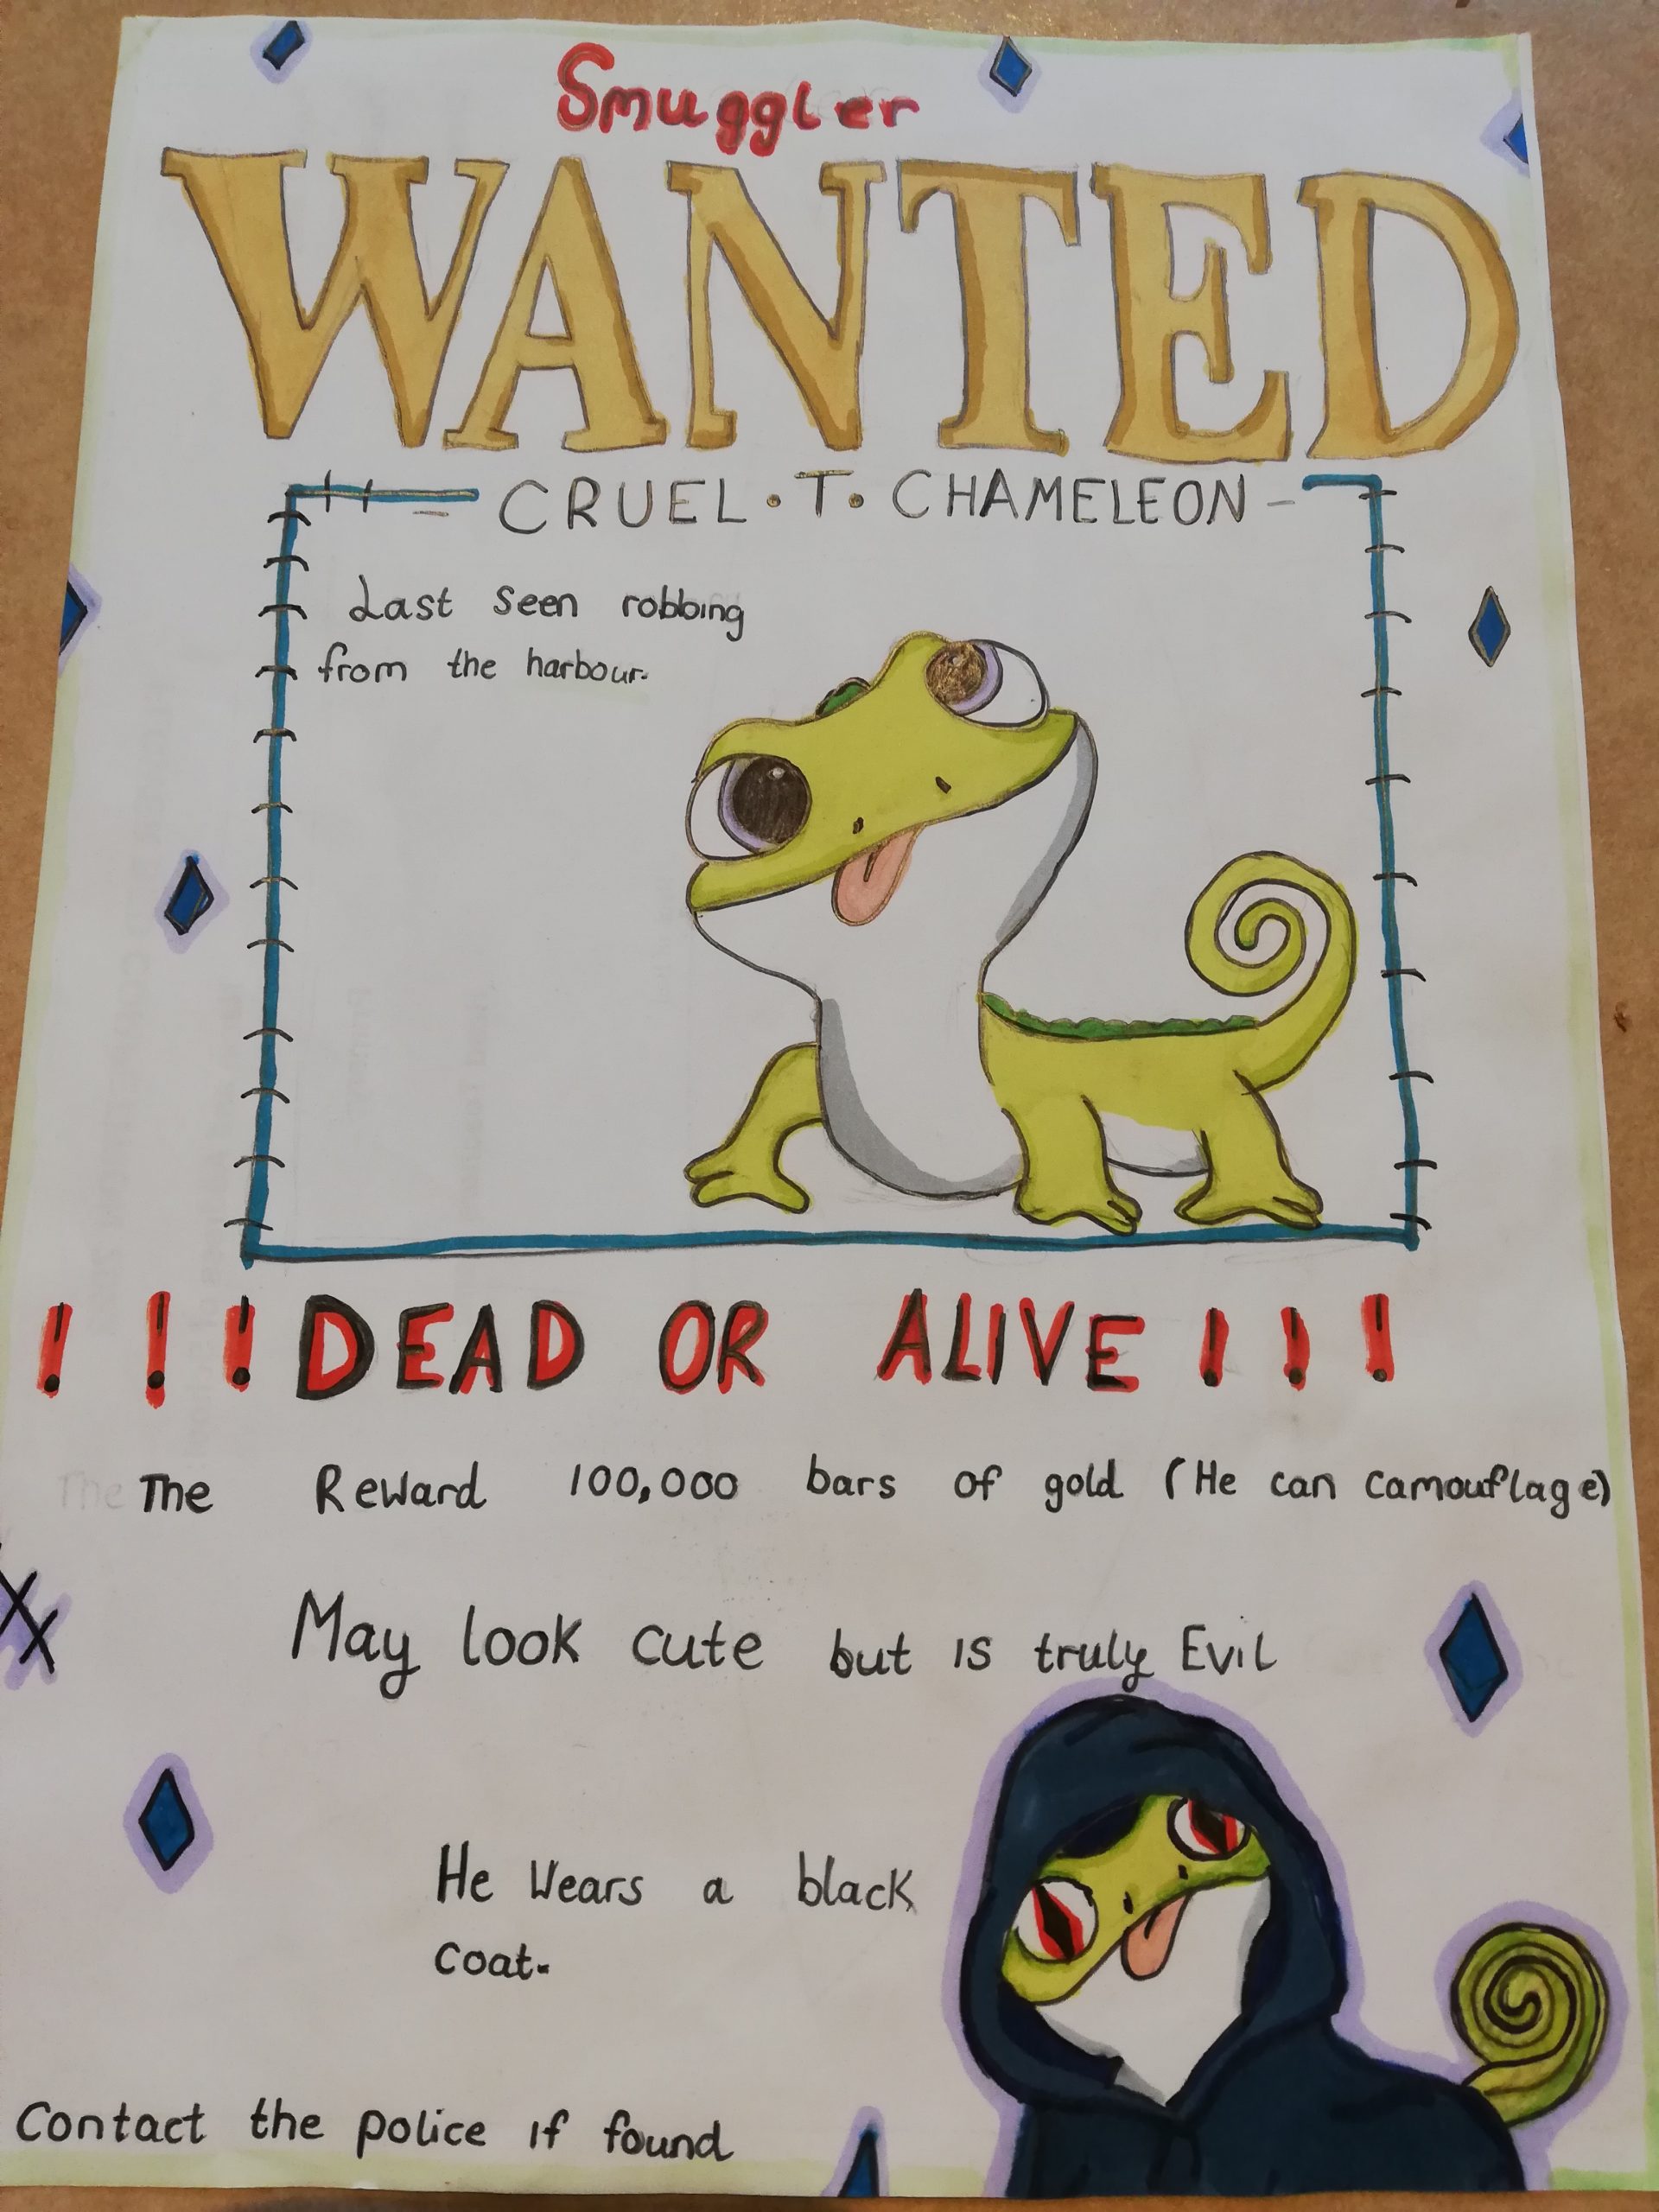 Smuggler
WANTED
CRUEL • T • CHAMELEON -
Last seen robbing
from the harbour.
!!! DEAD OR ALIVE!!!
The The Reward 100,000 bars of gold (He can camouflage)
May look cute but is truly Evil
He wears a black
coat.
Contact the police if found